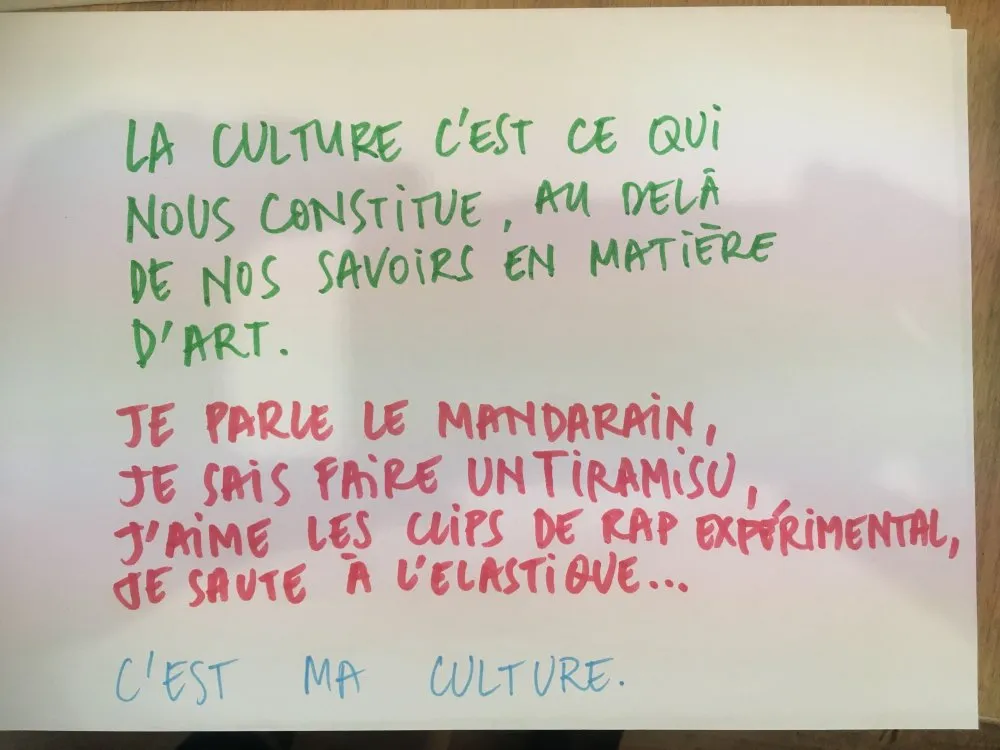 LA CULTURE C'EST CE QUI
NOUS CONSTITUE, AU DELÀ
DE NOS SAVOIRS EN MATIÈRE
D'ART.
JE PARLE LE MANDARAIN,
JE SAIS FAIRE UN TIRAMISU,
J'AIME LES CLIPS DE RAP EXPÉRIMENTAL,
JE SAUTE À L'ELASTIQUE...
C'EST MA CULTURE.